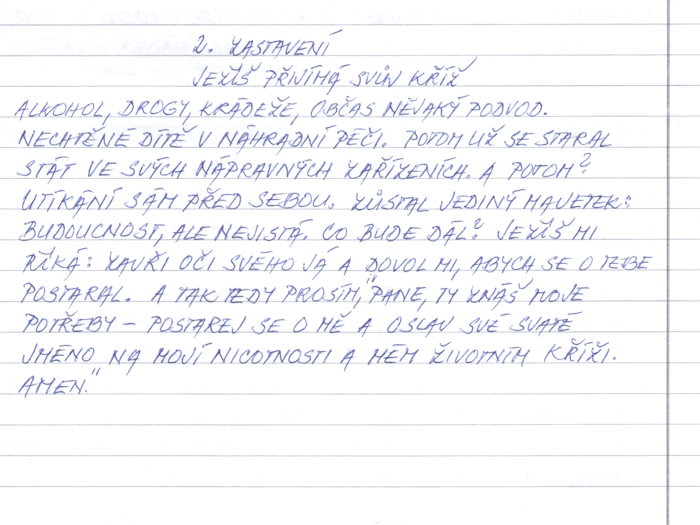 2. ZASTAVENÍ
JEŽÍŠ PŘIJÍMÁ SVŮJ KŘÍŽ
ALKOHOL, DROGY, KRÁDEŽE, OBČAS NĚJAKÝ PODVOD.
NECHTĚNÉ DÍTĚ V NÁHRADNÍ PÉČI. POTOM UŽ SE STARAL
STÁT VE SVÝCH NÁPRAVNÝCH ZAŘÍZENÍCH. A POTOM?
UTÍKÁNÍ SÁM PŘED SEBOU. ZŮSTAL JEDINÝ MAJETEK:
BUDOUCNOST, ALE NEJISTÁ. CO BUDE DÁL? JEŽÍŠ MI
ŘÍKÁ: ZAVŘI OČI SVÉHO JÁ A DOVOL MI, ABYCH SE O TEBE
POSTARAL. A TAK TEDY PROSÍM, "PANE, TY ZNÁŠ MOJE
POTŘEBY – POSTAREJ SE O MĚ A OSLAV SVÉ SVATÉ
JMÉNO NA MOJÍ NICOTNOSTI A MÉM ŽIVOTNÍM KŘÍŽI.
AMEN."